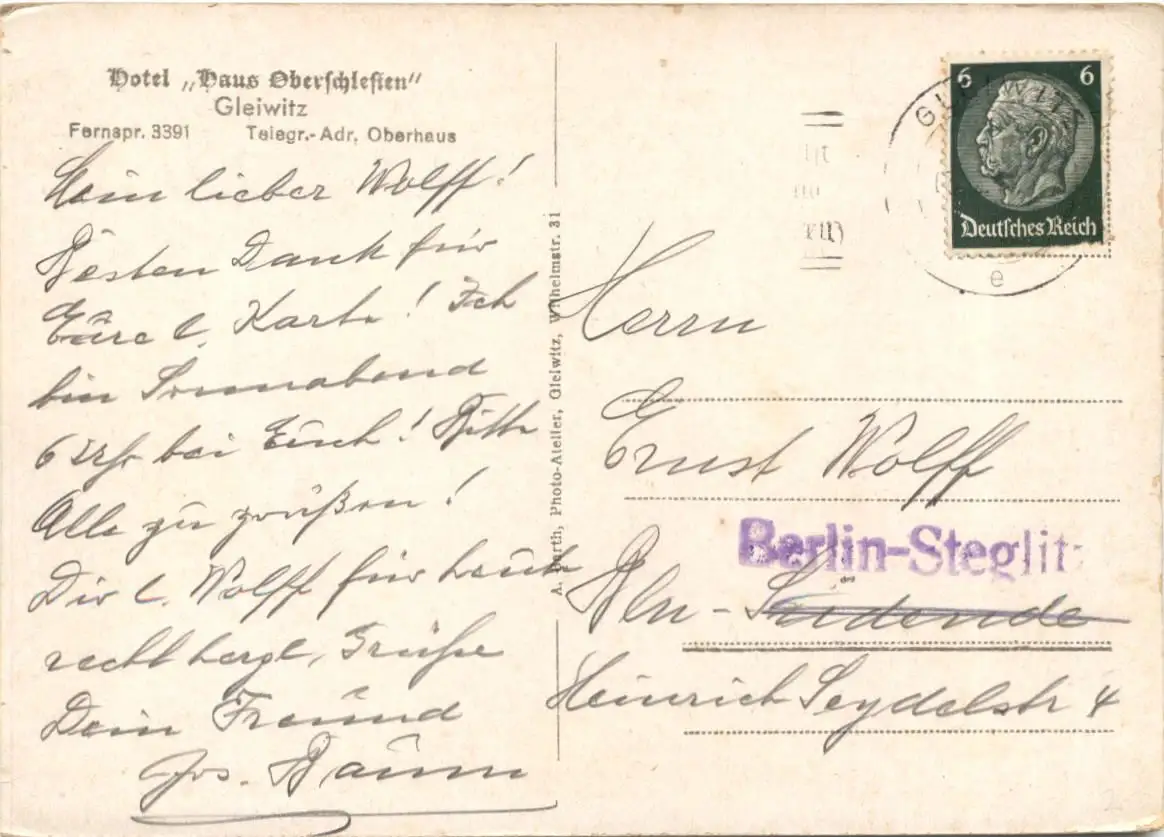 Hotel „Haus Oberschlesien"
Gleiwitz
Fernspr. 3391 Telegr.-Adr. Oberhaus
Mein lieber Wolff!
Besten Dank für
Eure l. Karte! Ich
bin Sonnabend
6 Uhr bei Euch! Bitte
Alle zu grüßen!
Dir l. Wolff für heute
recht herzl. Grüße
Dein Freund
Jos. Baum
A. Barth, Photo-Atelier, Gleiwitz, Wilhelmstr. 31
GLEIWITZ
e
6 6
Deutsches Reich
Herrn
Ernst Wolff
Berlin-Steglitz
Bln-Südende
Heinrich Seydelstr 4